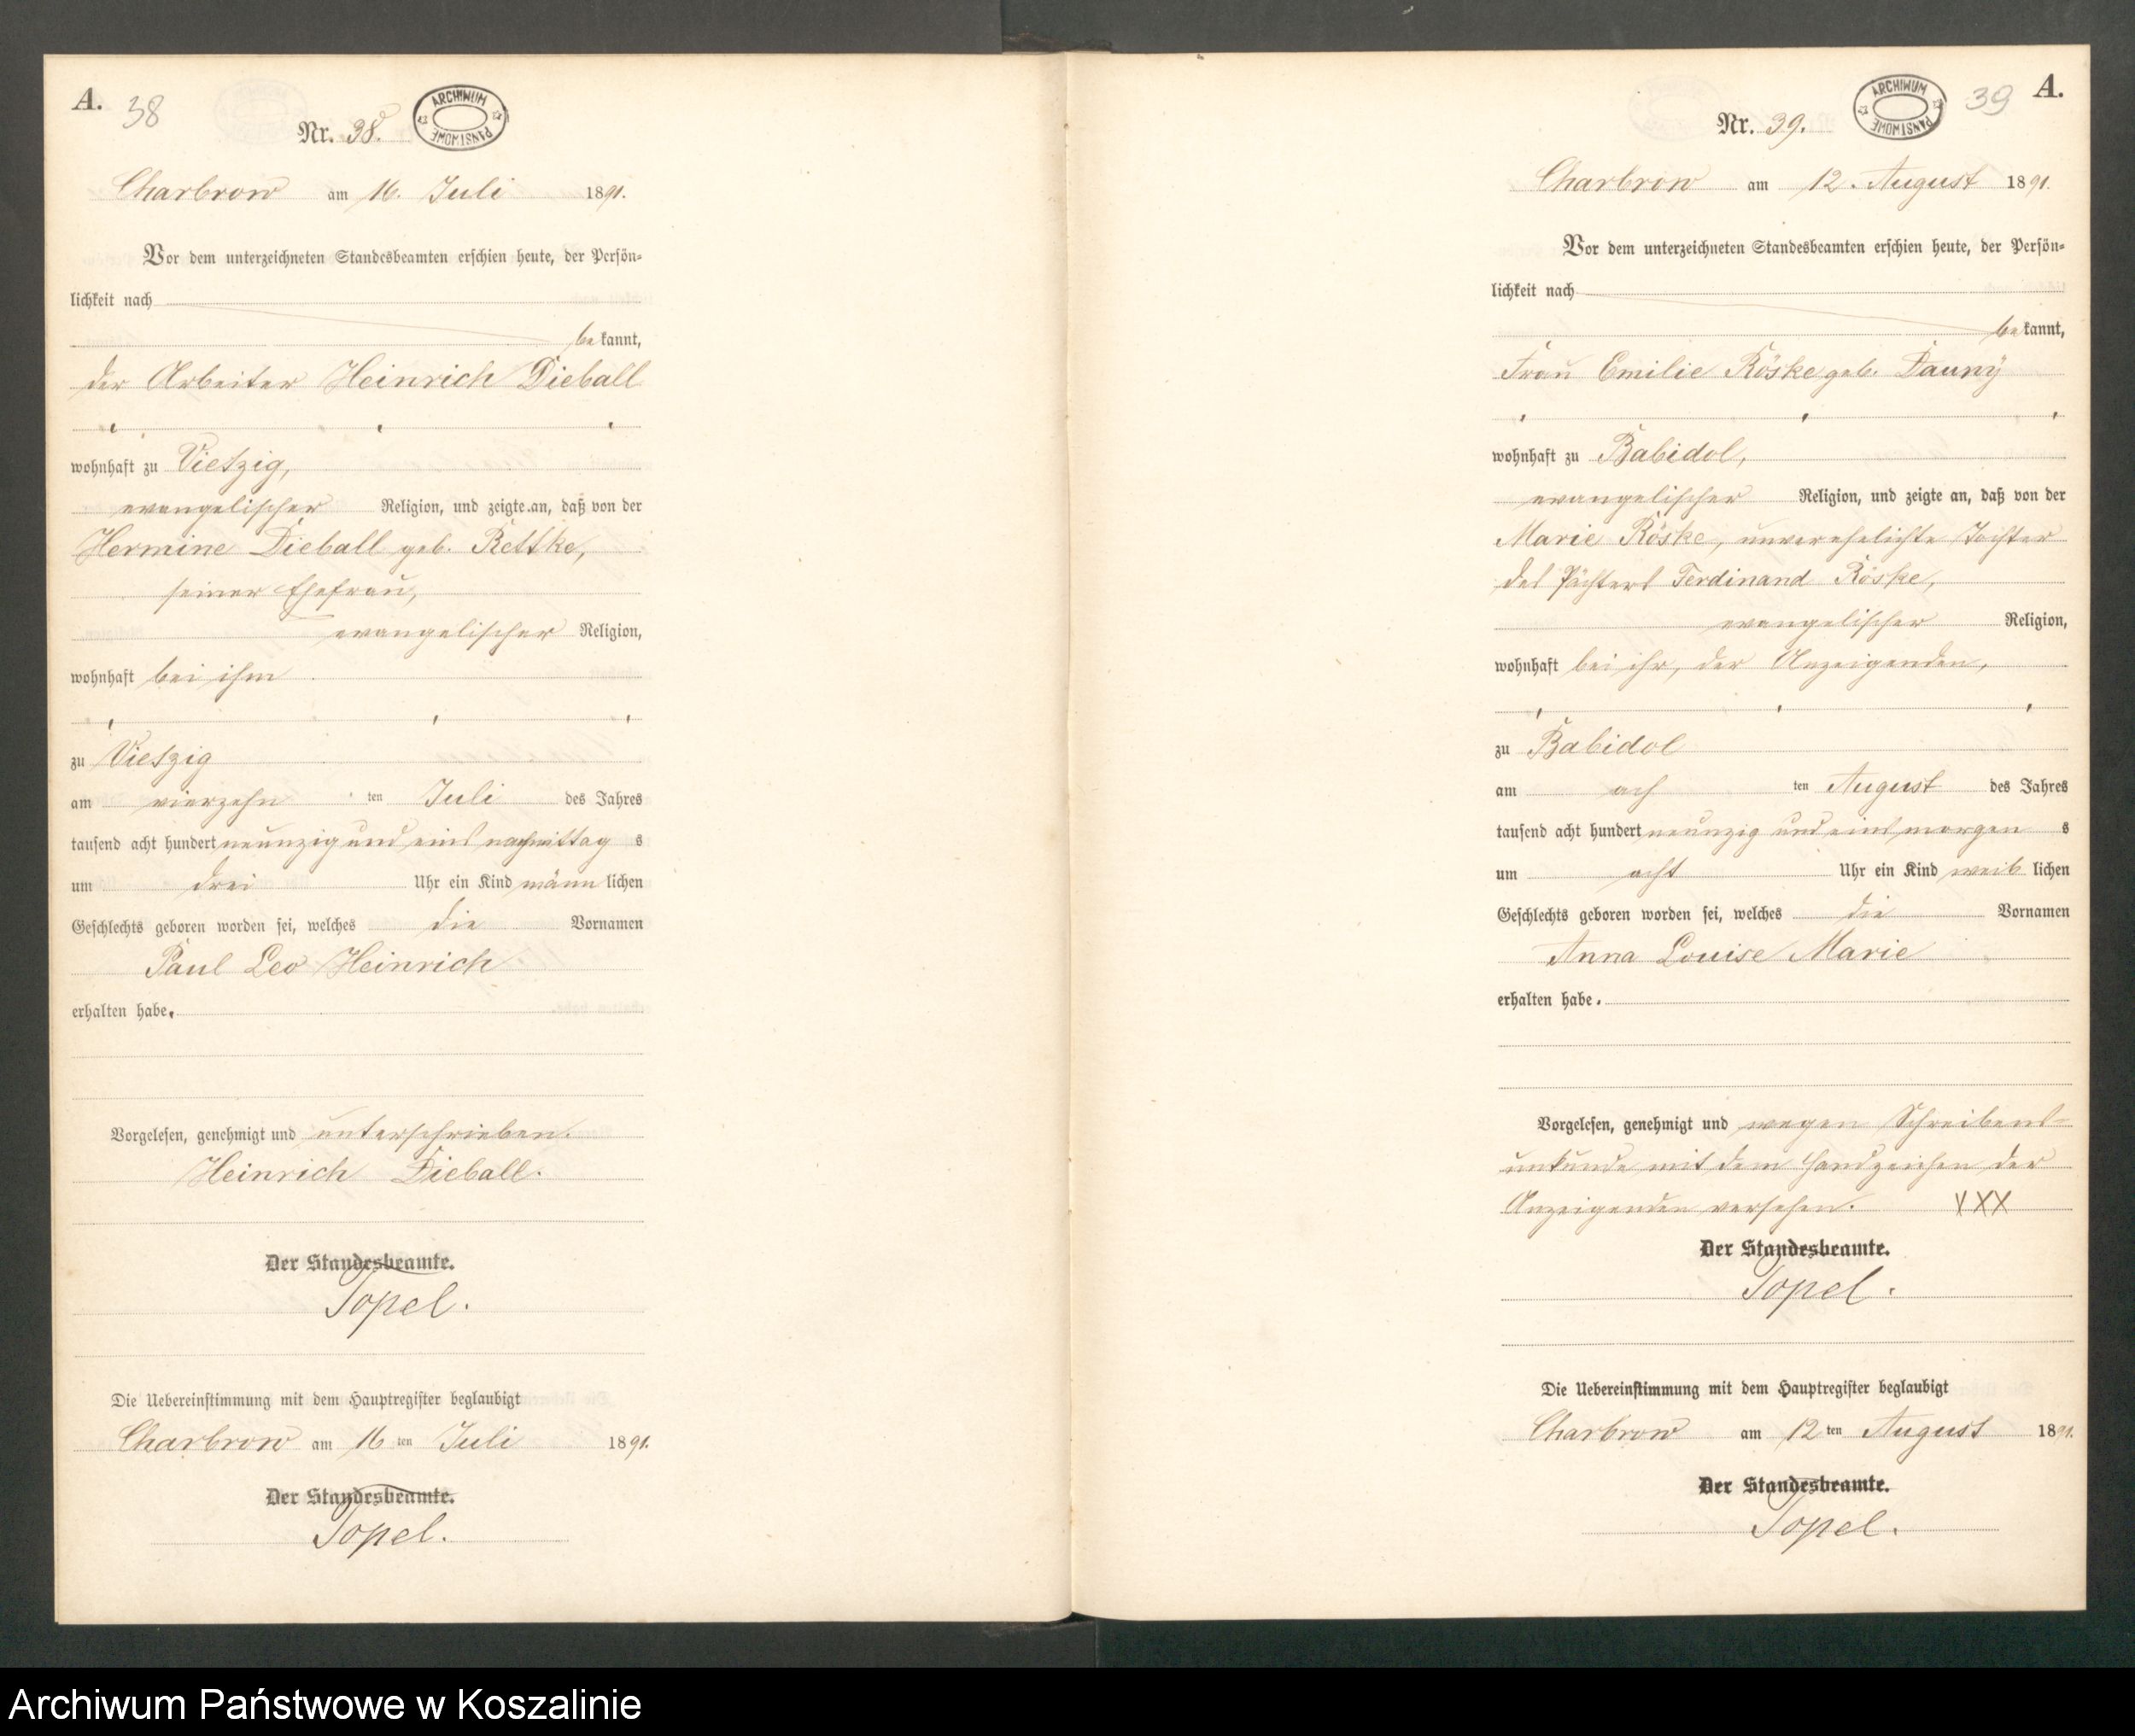 A.
38
Nr. 38.
ARCHIWUM PAŃSTWOWE
Charbrow am 16. Juli 1891.
Vor dem unterzeichneten Standesbeamten erschien heute, der Persön-
lichkeit nach
bekannt,
der Arbeiter Heinrich Dieball
wohnhaft zu Vietzig,
evangelischer Religion, und zeigte an, daß von der
Hermine Dieball geb. Rettke,
seiner Ehefrau,
evangelischer Religion,
wohnhaft bei ihm
zu Vietzig
am vierzehn ten Juli des Jahres
tausend acht hundert neunzig und eins nachmittag s
um drei Uhr ein Kind männlichen
Geschlechts geboren worden sei, welches die Vornamen
Paul Leo Heinrich
erhalten habe.
Vorgelesen, genehmigt und unterschrieben.
Heinrich Dieball.
Der Standesbeamte.
Topel.
Die Uebereinstimmung mit dem Hauptregister beglaubigt
Charbrow am 16 ten Juli 1891.
Der Standesbeamte.
Topel.
A.
39
Nr. 39.
ARCHIWUM PAŃSTWOWE
Charbrow am 12. August 1891.
Vor dem unterzeichneten Standesbeamten erschien heute, der Persön-
lichkeit nach
bekannt,
Frau Emilie Röske geb. Dauny
wohnhaft zu Babidol,
evangelischer Religion, und zeigte an, daß von der
Marie Röske, unverehelichte Tochter
des Pächters Ferdinand Röske,
evangelischer Religion,
wohnhaft bei ihr, der Anzeigenden,
zu Babidol
am ach ten August des Jahres
tausend acht hundert neunzig und eins morgen s
um acht Uhr ein Kind weiblichen
Geschlechts geboren worden sei, welches die Vornamen
Anna Louise Marie
erhalten habe.
Vorgelesen, genehmigt und wegen Schreibens-
unkunde mit dem Handzeichen der
Anzeigenden versehen. XXX
Der Standesbeamte.
Topel.
Die Uebereinstimmung mit dem Hauptregister beglaubigt
Charbrow am 12 ten August 1891.
Der Standesbeamte.
Topel.
Archiwum Państwowe w Koszalinie